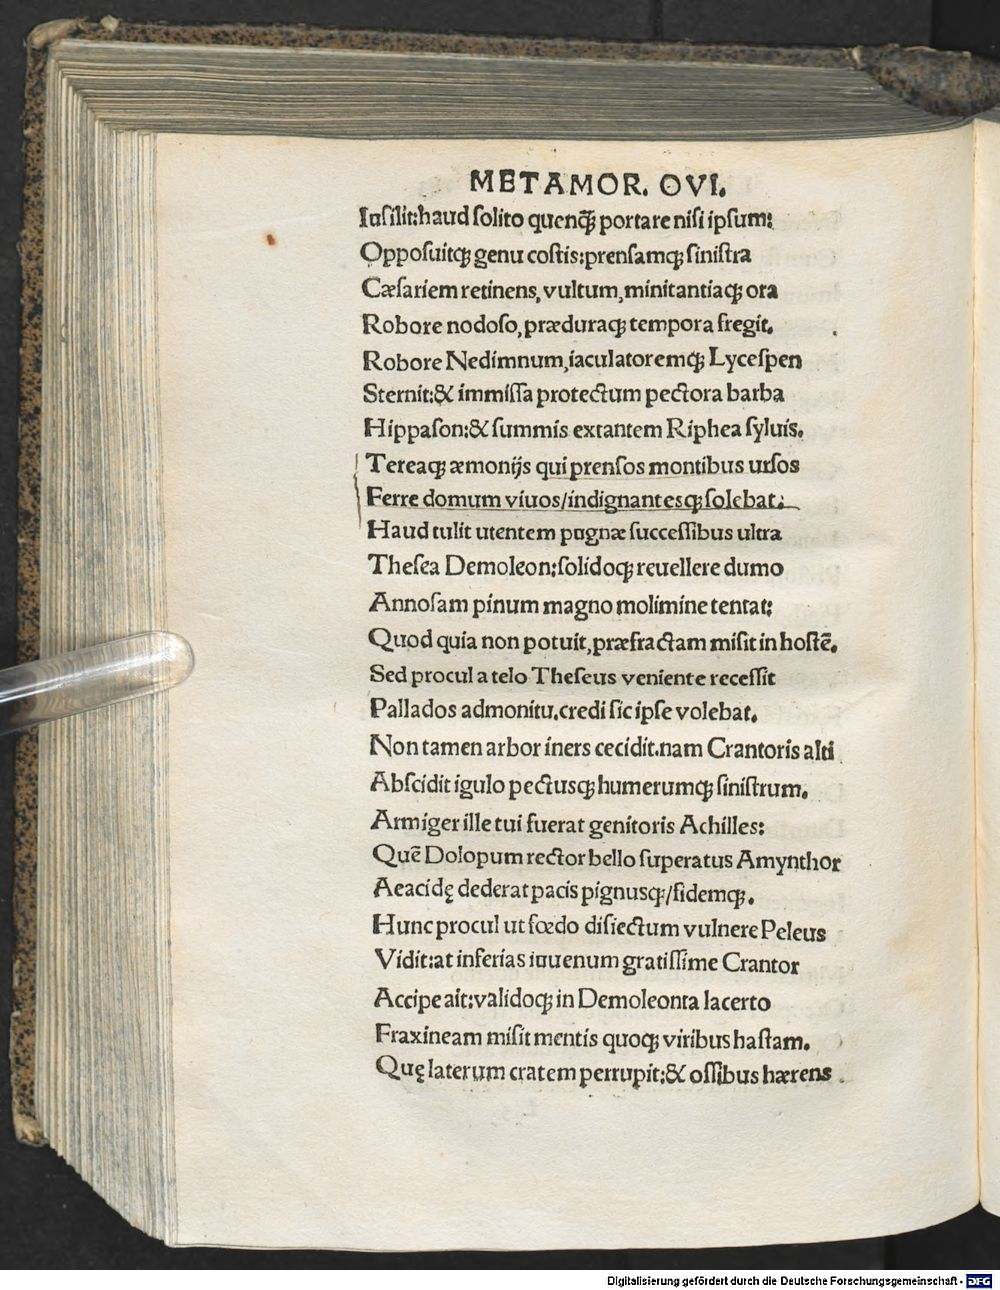 METAMOR. OVI.
Insilit:haud solito quenq̃ portare nisi ipsum:
Opposuitq; genu costis:prensamq; sinistra
Cæsariem retinens, vultum, minitantiaq; ora
Robore nodoso, præduraq; tempora fregit.
Robore Nedimnum, iaculatoremq; Lycespen
Sternit:& immissa protectum pectora barba
Hippason:& summis extantem Riphea syluis.
Tereaq; æmonijs qui prensos montibus ursos
Ferre domum viuos/indignantesq; solebat.
Haud tulit utentem pugnæ successibus ultra
Thesea Demoleon:solidoq; reuellere dumo
Annosam pinum magno molimine tentat:
Quod quia non potuit, præfractam misit in hostē.
Sed procul a telo Theseus veniente recessit
Pallados admonitu.credi sic ipse volebat.
Non tamen arbor iners cecidit.nam Crantoris alti
Abscidit igulo pectusq; humerumq; sinistrum.
Armiger ille tui fuerat genitoris Achilles:
Quē Dolopum rector bello superatus Amynthor
Aeacidę dederat pacis pignusq;/fidemq;.
Hunc procul ut fœdo disiectum vulnere Peleus
Vidit:at inferias iuuenum gratissime Crantor
Accipe ait:validoq; in Demoleonta lacerto
Fraxineam misit mentis quoq; viribus hastam.
Quę laterum cratem perrupit:& ossibus hærens
Digitalisierung gefördert durch die Deutsche Forschungsgemeinschaft - DFG